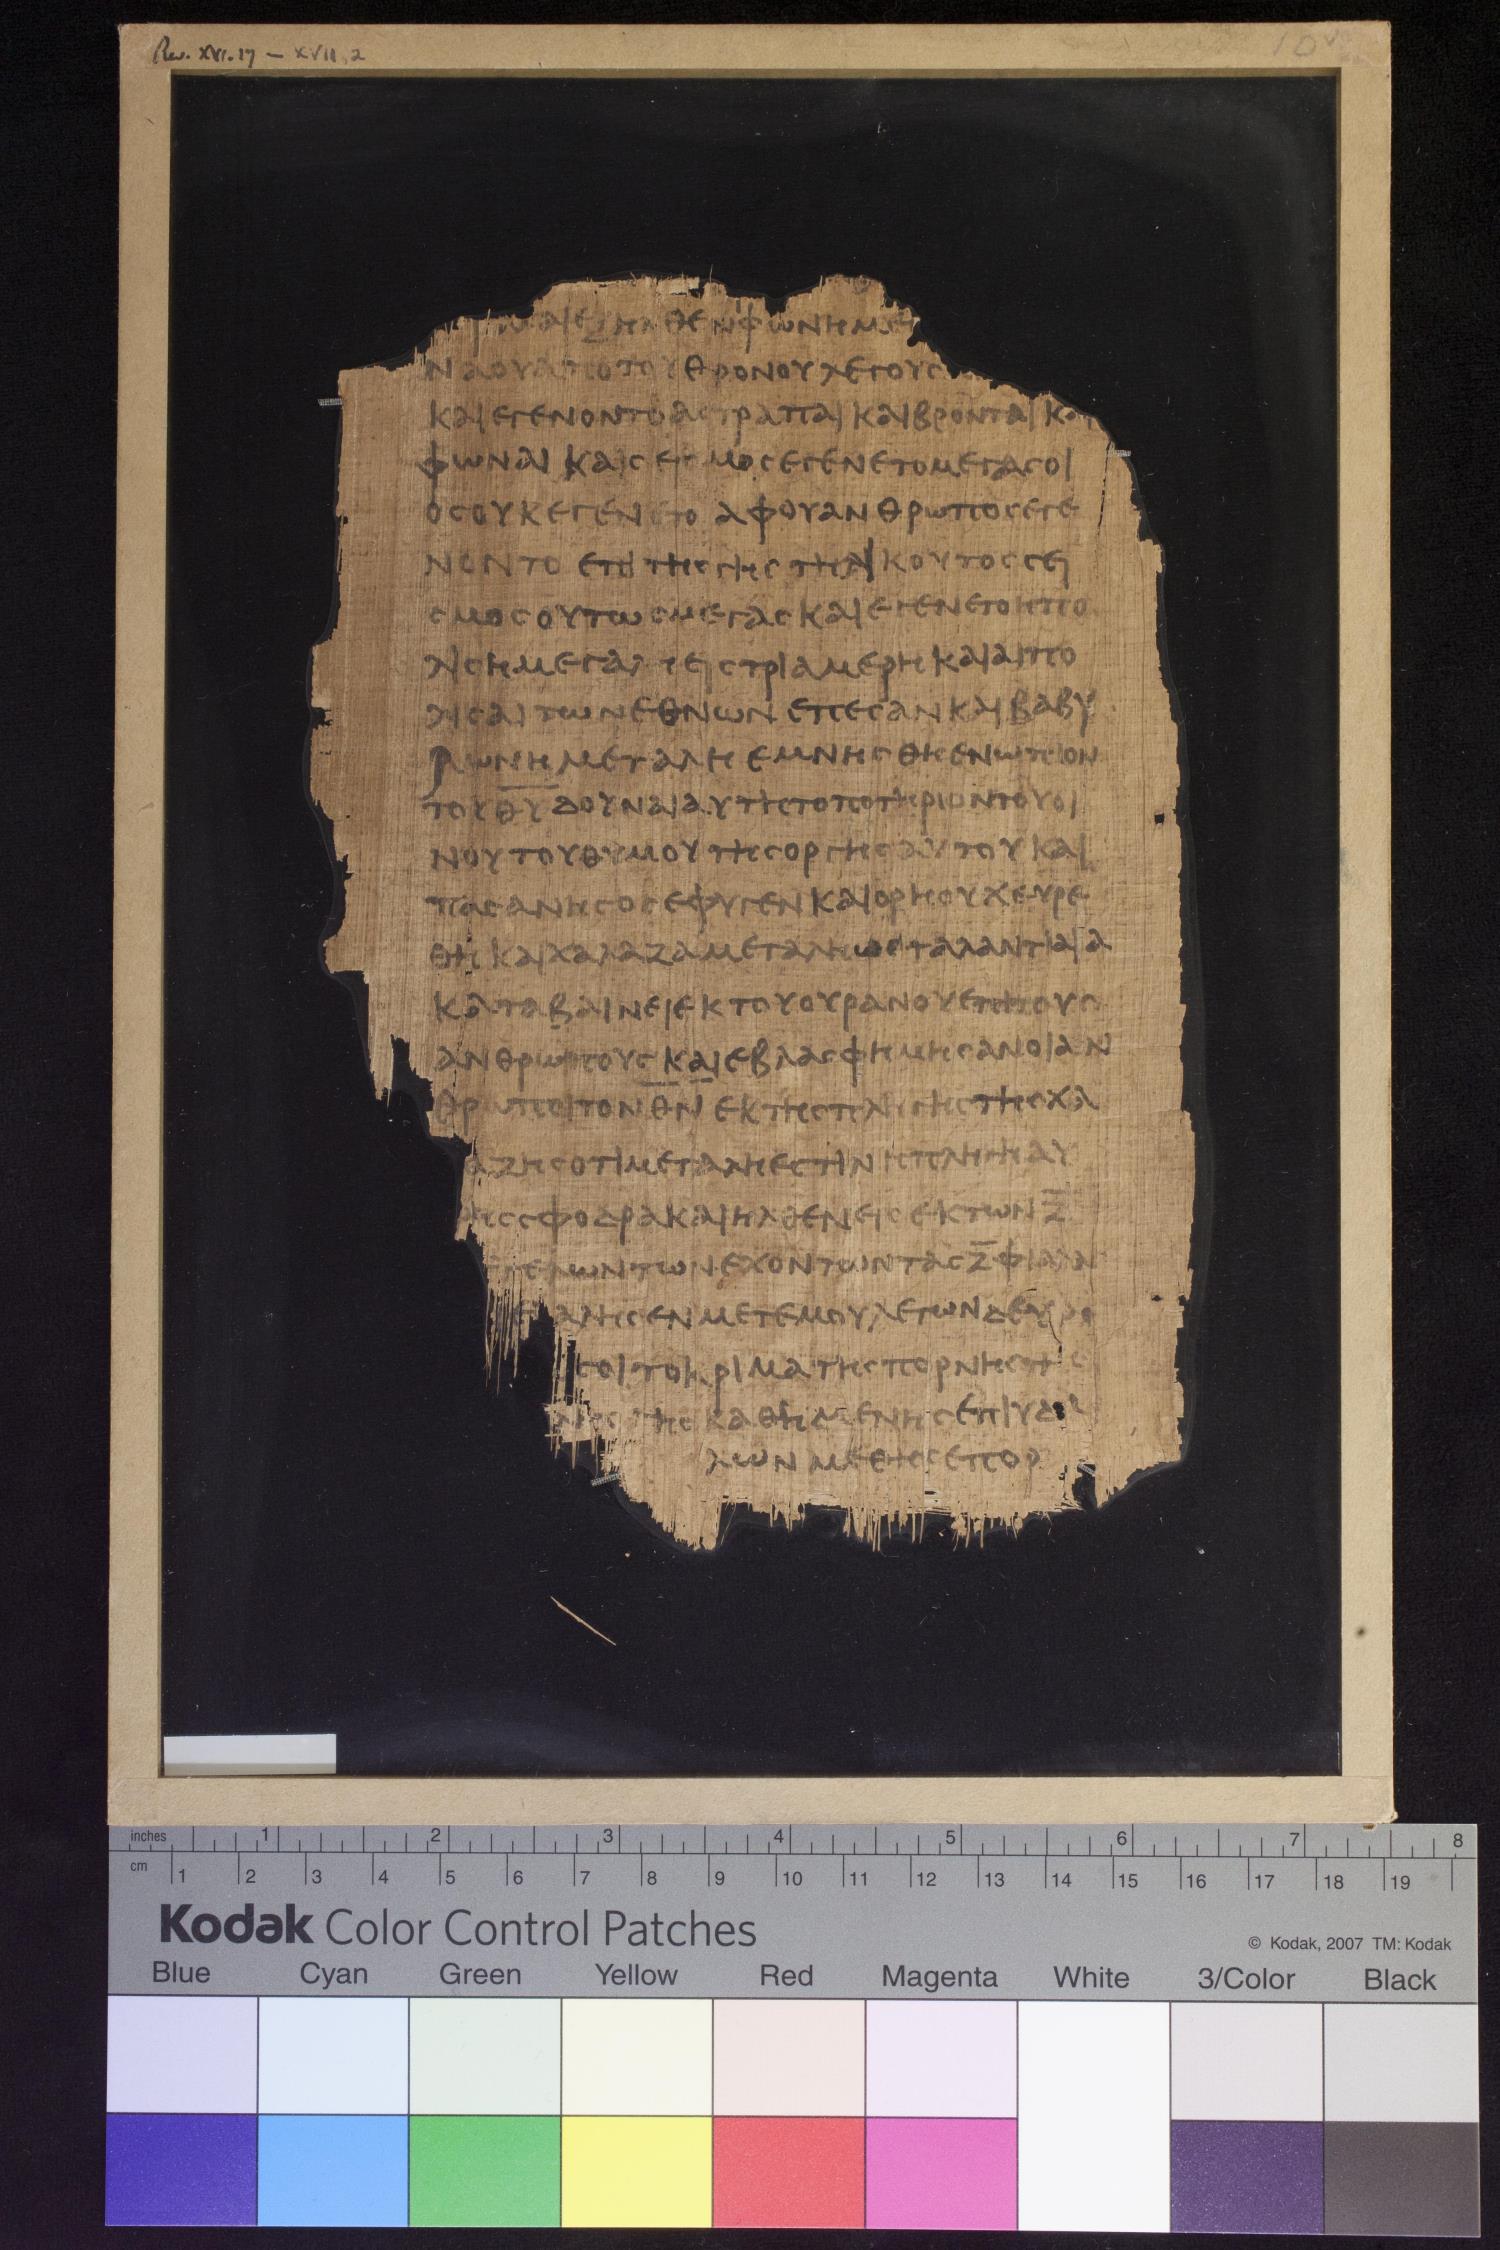 Rev. XVI.17 – XVII,2
10
ΕΞΗΛΘΕΝΦΩΝΗΜΕΓ
ΝΑΟΥΑΠΟΤΟΥΘΡΟΝΟΥΛΕΓΟΥΣ
ΚΑΙΕΓΕΝΟΝΤΟΑΣΤΡΑΠΑΙΚΑΙΒΡΟΝΤΑΙΚΑΙ
ΦΩΝΑΙΚΑΙΣΕΙΣΜΟΣΕΓΕΝΕΤΟΜΕΓΑΣΟΙ
ΟΣΟΥΚΕΓΕΝΕΤΟΑΦΟΥΑΝΘΡΩΠΟΣΕΓΕ
ΝΟΝΤΟΕΠΙΤΗΣΓΗΣΤΗΛΙΚΟΥΤΟΣΣΕΙ
ΣΜΟΣΟΥΤΩΣΜΕΓΑΣΚΑΙΕΓΕΝΕΤΟΗΠΟ
ΛΙΣΗΜΕΓΑΛΤΕΙΣΤΡΙΑΜΕΡΗΚΑΙΑΙΠΟ
ΛΙΣΑΙΤΩΝΕΘΝΩΝΕΠΕΣΑΝΚΑΙΒΑΒΥ
ΛΩΝΗΜΕΓΑΛΗΕΜΝΗΣΘΗΕΝΩΠΙΟΝ
ΤΟΥΘ̅Υ̅ΔΟΥΝΑΙΑΥΤΗΣΤΟΠΟΤΗΡΙΟΝΤΟΥΟΙ
ΝΟΥΤΟΥΘΥΜΟΥΤΗΣΟΡΓΗΣΑΥΤΟΥΚΑΙ
ΠΑΣΑΝΗΣΟΣΕΦΥΓΕΝΚΑΙΟΡΗΟΥΧΕΥΡΕ
ΘΗΚΑΙΧΑΛΑΖΑΜΕΓΑΛΗΩΣΤΑΛΑΝΤΙΑΙΑ
ΚΑΤΑΒΑΙΝΕΙΕΚΤΟΥΟΥΡΑΝΟΥΕΠΙΤΟΥΣ
ΑΝΘΡΩΠΟΥΣΚΑΙΕΒΛΑΣΦΗΜΗΣΑΝΟΙΑΝ
ΘΡΩΠΟΙΤΟΝΘ̅Ν̅ΕΚΤΗΣΠΛΗΓΗΣΤΗΣΧΑ
ΑΖΗΣΟΤΙΜΕΓΑΛΗΕΣΤΙΝΗΠΛΗΓΗΑΥ
ΗΣΣΦΟΔΡΑΚΑΙΗΛΘΕΝΕΙΣΕΚΤΩΝΖ̅
ΓΕΛΩΝΤΩΝΕΧΟΝΤΩΝΤΑΣΖ̅ΦΙΑΛΑ
ΕΛΑΛΗΣΕΝΜΕΤΕΜΟΥΛΕΓΩΝΔΕΥΡΟ
ΣΟΙΤΟΚΡΙΜΑΤΗΣΠΟΡΝΗΣΤΗΣ
ΛΗΣΤΗΣΚΑΘΗΜΕΝΗΣΕΠΙΥΔΑ
ΛΩΝΜΕΘΗΣΕΠΟΡ
inches 1 2 3 4 5 6 7 8
cm 1 2 3 4 5 6 7 8 9 10 11 12 13 14 15 16 17 18 19
Kodak Color Control Patches
© Kodak, 2007 TM: Kodak
Blue Cyan Green Yellow Red Magenta White 3/Color Black